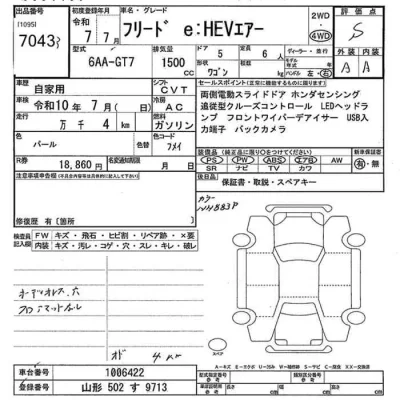 出品番号
J1095I
7043
初度登録年月
令和
7年 7月
車名・グレード
フリード e:HEVエアー
2WD
・
4WD
評点
S
型式
6AA-GT7
排気量
1500
cc
ドア
5
形状
ワゴン
定員
6人
ディーラー・並行
ハンドル 左・右
外装 内装
A A
車歴
自家用
シフト
CVT
車検
令和10年 7月( 日)
冷房
AC
走行
万 千 4 km
燃料
ガソリン
色
パール
色替
カラーNo.
リサイクル預託金
18,860円
名変通知期限
月 日
セールスポイント
両側電動スライドドア ホンダセンシング
追従型クルーズコントロール LEDヘッドラ
ンプ フロントワイパーデアイサー USB入
力端子 バックカメラ
装備品
PS PW ABS エアB AW
SR ナビ TV カワ
新車保証書
有・無
後日品
保証書・取説・スペアキー
注意事項欄
修復歴 有〔箇所 〕
検査員
記入欄
FW キズ・飛石・ヒビ割・リペア跡・×要
内装 キズ・汚レ・コゲ・穴・スレ・キレ・破レ
カラー
NH883P
オーディオレス、穴
フロアマットナシ
オド 4km
スペア
A…キズ E…エクボ U…凹み W…補修跡 S…サビ C…腐食 XX…交換済
車台番号
1006422
登録番号
山形 502 す 9713
長さ cm 幅 cm 高さ cm